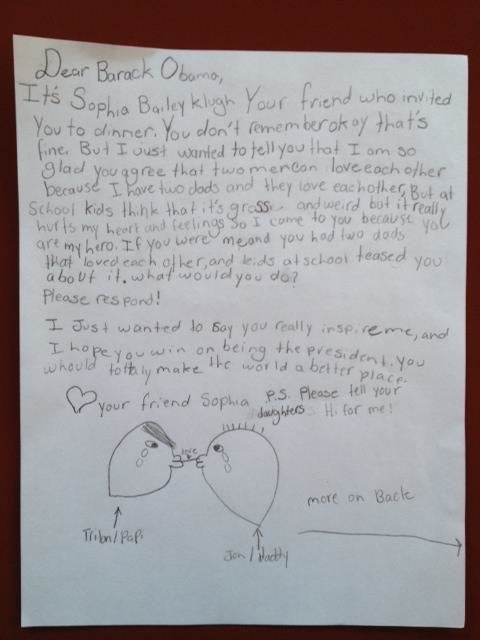 Dear Barack Obama,
It's Sophia Bailey Klugh Your friend who invited
You to dinner. You don't remember okay that's
fine. But I Just wanted to tell you that I am so
glad you agree that two men can love each other
because I have two dads and they love each other, But at
School kids think that it's grosse and weird but it really
hurts my heart and feelings So I come to you because you
are my hero. If you were me and you had two dads
that loved each other, and kids at school teased you
about it. what would you do?
Please respond!
I Just wanted to say you really inspire me, and
I hope you win on being the president. You
whould totally make the world a better place.
your friend Sophia
P.S. Please tell your
daughters Hi for me!
love
more on Back
Papi
Jon / daddy